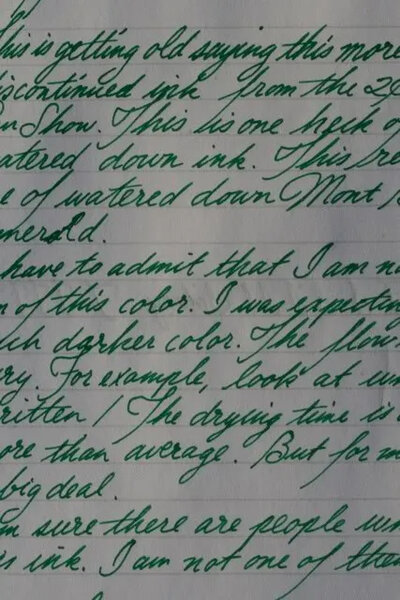 his is getting old saying this more
iscontinued ink from the 20
n Show. This is one heck o
atered down ink. This re
e of watered down Mont B
merald.
have to admit that I am no
n of this color. I was expecting
ch darker color. The flow
ry. For example, look at
ritten / The drying time is
ore than average. But for m
big deal.
m sure there are people
is ink. I am not one of them